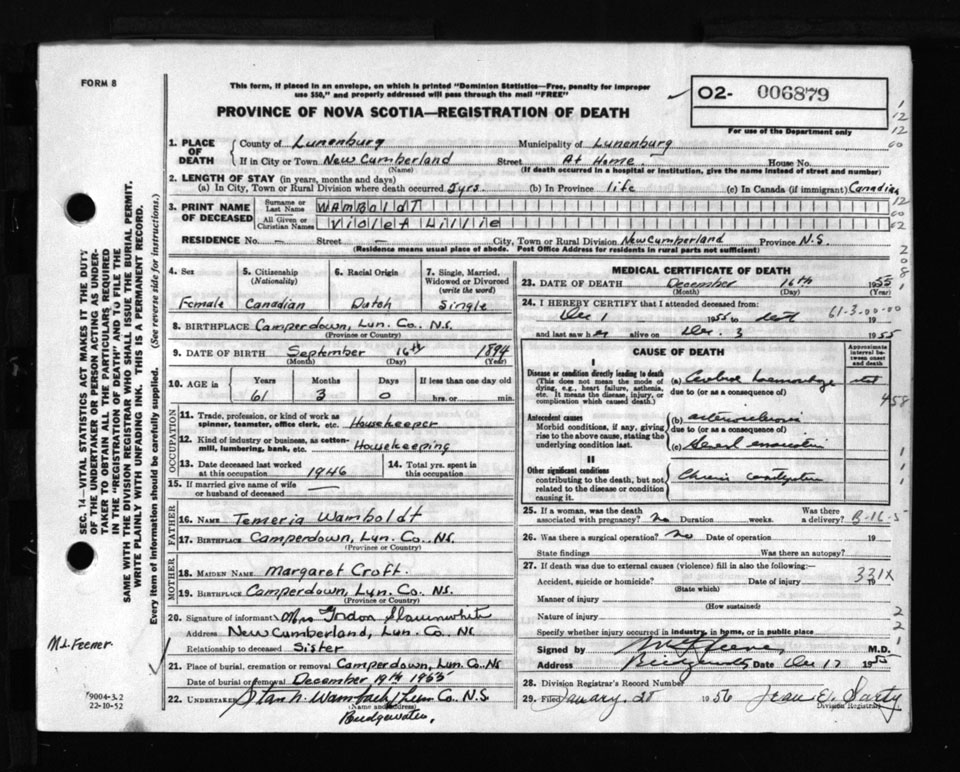 FORM 8
This form, if placed in an envelope, on which is printed "Dominion Statistics—Free, penalty for improper
use $50," and properly addressed will pass through the mail "FREE"
PROVINCE OF NOVA SCOTIA—REGISTRATION OF DEATH
02- 006879
For use of the Department only
1. PLACE OF DEATH County of Lunenburg Municipality of Lunenburg
If in City or Town New Cumberland Street At Home House No.
(Name) (If death occurred in a hospital or institution, give the name instead of street and number)
2. LENGTH OF STAY (in years, months and days)
(a) In City, Town or Rural Division where death occurred 2yrs. (b) In Province life (c) In Canada (if immigrant) Canadian
3. PRINT NAME OF DECEASED Surname or Last Name WAMBOLDT
All Given or Christian Names Violet Lillie
RESIDENCE No. — Street — City, Town or Rural Division New Cumberland Province N.S.
(Residence means usual place of abode. Post Office Address for residents in rural parts not sufficient)
4. Sex Female
5. Citizenship (Nationality) Canadian
6. Racial Origin Dutch
7. Single, Married, Widowed or Divorced (write the word) Single
8. BIRTHPLACE Camperdown, Lun. Co. N.S.
(Province or Country)
9. DATE OF BIRTH September 16th 1894
(Month) (Day) (Year)
10. AGE in Years Months Days If less than one day old
61 3 0 hrs. or min.
OCCUPATION
11. Trade, profession, or kind of work as spinner, teamster, office clerk, etc. Housekeeper
12. Kind of industry or business, as cotton-mill, lumbering, bank, etc. Housekeeping
13. Date deceased last worked at this occupation 1946 14. Total yrs. spent in this occupation
15. If married give name of wife or husband of deceased —
FATHER
16. NAME Temeria Wamboldt
17. BIRTHPLACE Camperdown, Lun. Co. N.S.
(Province or Country)
MOTHER
18. MAIDEN NAME Margaret Croft.
19. BIRTHPLACE Camperdown, Lun. Co. N.S.
(Province or Country)
20. Signature of informant Mrs
Address New Cumberland, Lun. Co. NS
Relationship to deceased Sister
21. Place of burial, cremation or removal Camperdown, Lun. Co. NS
Date of burial or removal December 19th 1955
22. UNDERTAKER Lun Co. N.S
(Name and address)
Bridgewater,
MEDICAL CERTIFICATE OF DEATH
23. DATE OF DEATH December 16th 1955
(Month) (Day) (Year)
24. I HEREBY CERTIFY that I attended deceased from: 61-3-00-00
Dec 1 1955 to death 19
and last saw her alive on Dec. 3 1955
CAUSE OF DEATH
Approximate interval between onset and death
I
Disease or condition directly leading to death (a) Cerebral haemorrhage
(This does not mean the mode of dying, e.g., heart failure, asthenia, etc. It means the disease, injury, or complication which caused death.) due to (or as a consequence of)
Antecedent causes (b) arteriosclerosis
Morbid conditions, if any, giving rise to the above cause, stating the underlying condition last. due to (or as a consequence of)
(c)
II
Other significant conditions
contributing to the death, but not related to the disease or condition causing it. Chronic
25. If a woman, was the death associated with pregnancy? no Duration weeks. Was there a delivery? B-16-5
26. Was there a surgical operation? no Date of operation 19
State findings Was there an autopsy?
27. If death was due to external causes (violence) fill in also the following:—
Accident, suicide or homicide? Date of injury 19
331X
(State which)
Manner of injury
(How sustained)
Nature of injury
Specify whether injury occurred in industry, in home, or in public place
Signed by M.D.
Address Bridgewater Date Dec 17 1955
28. Division Registrar's Record Number
29. Filed January 28 1956
Division Registrar
SEC. 14—VITAL STATISTICS ACT MAKES IT THE DUTY
OF THE UNDERTAKER OR PERSON ACTING AS UNDER-
TAKER TO OBTAIN ALL THE PARTICULARS REQUIRED
IN THE "REGISTRATION OF DEATH" AND TO FILE THE
SAME WITH THE DIVISION REGISTRAR WHO SHALL ISSUE THE BURIAL PERMIT.
WRITE PLAINLY WITH UNFADING INK. THIS IS A PERMANENT RECORD.
Every item of information should be carefully supplied. (See reverse side for instructions.)
M.L. Feener
9004-3.2
22-10-52